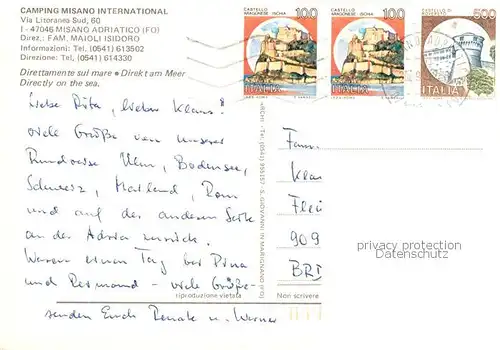 CAMPING MISANO INTERNATIONAL
Via Litoranea Sud, 60
I - 47046 MISANO ADRIATICO (FO)
Direz.: FAM. MAIOLI ISIDORO
Informazioni: Tel. (0541) 613502
Direzione: Tel. (0541) 614330
Direttamente sul mare • Direkt am Meer
Directly on the sea.
CASTELLO ARAGONESE · ISCHIA 100
ITALIA
CASTELLO ARAGONESE · ISCHIA 100
ITALIA
CASTELLO 500
ITALIA
Liebe Rita, lieber Klaus!
viele Grüße von unserer
Rundreise Ulm, Bodensee,
Schweiz, Mailand, Rom
und auf der anderen Seite
an der Adria zurück.
Waren einen Tag bei Dina
und Reimund – viele Grüße
senden Euch Renate u. Werner
riproduzione vietata
Tel. (0541) 955157 - S. GIOVANNI IN MARIGNANO (FO)
Fam.
Klau
909
BRD
Non scrivere
privacy protection
Datenschutz